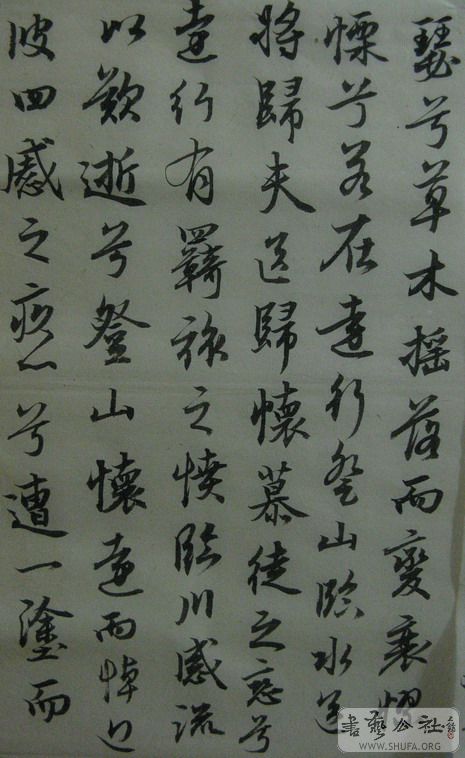 瑟兮草木搖落而變衰憭
慄兮若在遠行登山臨水送
將歸夫送歸懷慕徒之戀兮
遠行有羈旅之憤臨川感流
以歎逝兮登山懷遠而悼近
彼四慼之疚心兮遭一塗而
書藝公社
WWW.SHUFA.ORG